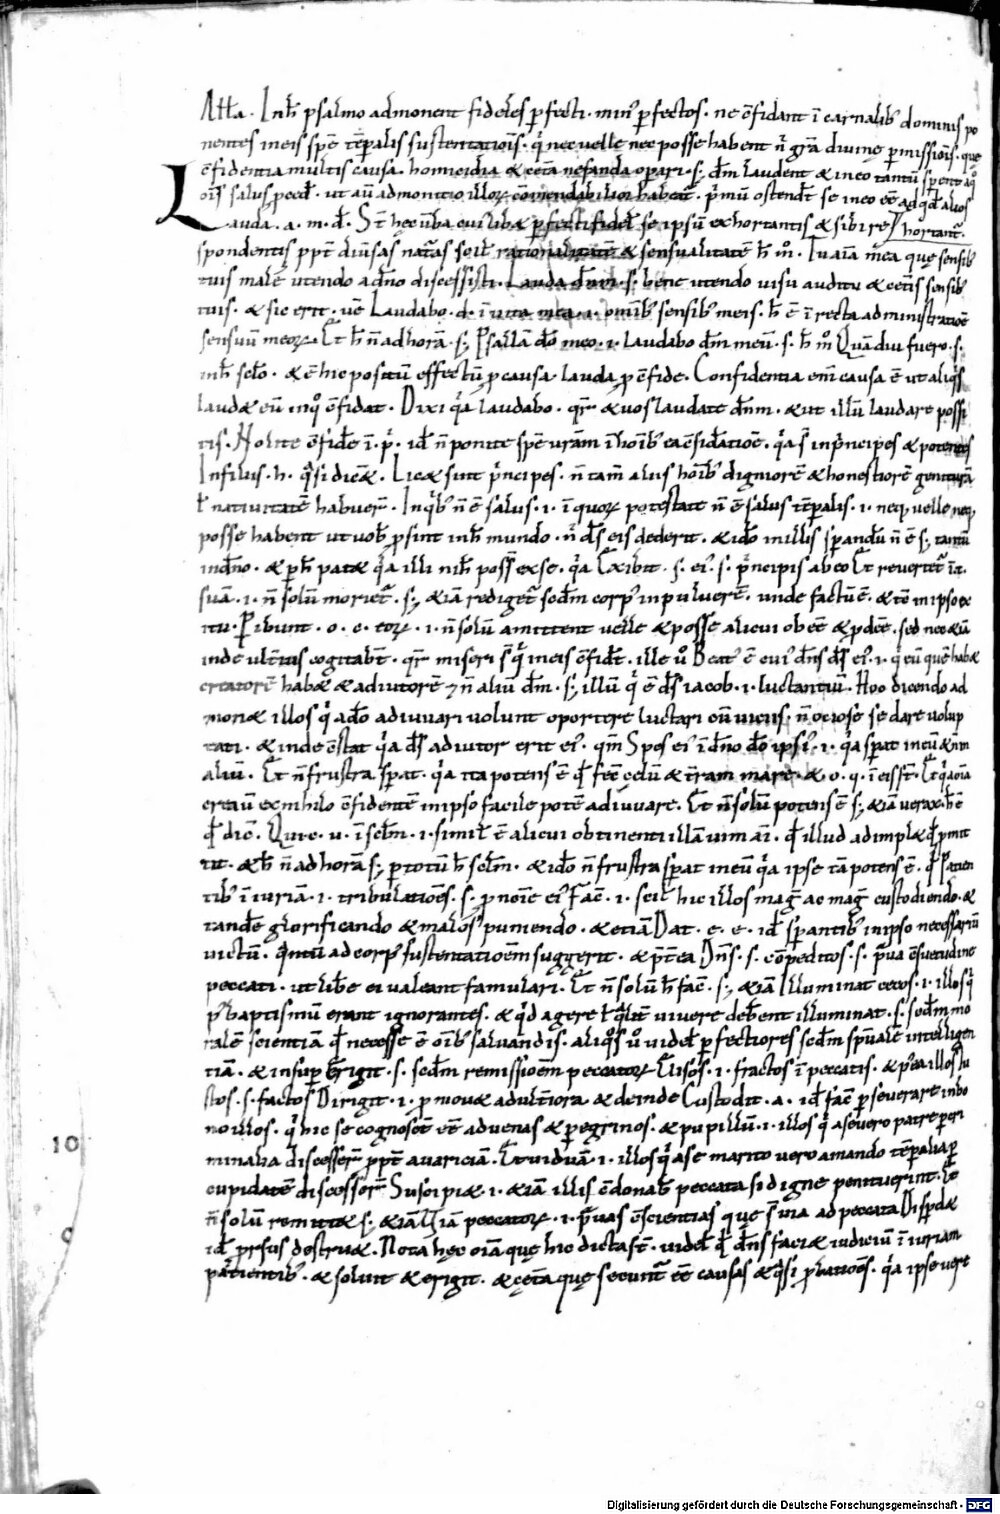 Att̄a. In h̄ psalmo admonent fideles ꝑfecti. min᾽ ꝑfectos. ne c̄fidant ī carnalib᾽ dominis po
nentes in eis spē tēꝑalis sustentationis. q̇ nec velle nec posse habent n̄ gr̄a divinę ꝑmissionis. que
c̄fidentia multis causa. homicidia & cet̄a nefanda oꝑari. s; dm̄ laudent & in eo tantū sꝑent aq̊
oīs salus ꝓced̄. ut aūt admonitio illoꝝ cōmendabilior habeat᾽. ṗmū ostend̄t se in eo eē ad qd̄ alios
Lauda. a. m. d̄. S̄t hęc v̄ba cuiuslib& ꝑfecti fidel̄ se ipsū exhortantis & sibi re hortant᾽.
spondentis ꝓpt̄ div̄sas nat᾽as scil̄ rationalitatē & sensualitatē h̄ m̊. Tu aīa mea quę sensib᾽
tuis male utendo ad̄no discessisti. Lauda dn̄m. s. bene utendo uisu auditu & cet̄is sensib᾽
tuis. & sic erit. ūe Laudabo. d. ī uita mea. ı. omīb᾽ sensib᾽ meis. h̄ ē ī recta administratiōe
sensuū meoꝝ. Et h̄ n̄ ad horā. s; Psallā dō meo. ı. laudabo dm̄ meū. s. h̄ m̊ Quā diu fuero. s.
in h̄ sclo. & ē hic positū effectū ꝓ causa. lauda ꝓ c̄fide. Confidentia eni causa ē ut aliq̇s
laud& eū in q̊ c̄fidat. Dixi q̇a laudabo. qr̄ & vos laudate dn̄m. & ut illū laudare possi
tis. Nolite c̄fide ī. p̄. id̄ n̄ ponite spē ur̄am ī hoīb᾽ ea c̄sid̄atiōe. q̇a s̄ in ṗncipes & potentes
In filiis. h. q̇si dic&. Lic& sint ṗncipes. n̄ tam̄ aliis hoīb᾽ digniorē & honestiorē genituram
ł nativitatē habuer̄. In q̇b᾽ n̄ ē salus. ı. ī quoꝝ potestate n̄ ē salus tēꝑalis. ı. neq; uelle neq;
posse habent ut vob̄ ꝓsint in h̄ mundo. n̄ ds̄ eis dederit. & idō in illis sꝑandū n̄ ē s; tantū
in dn̄o. & ꝑ h̄ pat& q̇a illi nih̄ poss̄t ex se. q̇a Exibit. s. ei᾽. s. ṗncipis ab eo Et revertet᾽ ī t.
suā. ı. n̄ solū moriet᾽. s; & iā rediget᾽ scd̄m corp᾽ in pulverē. unde factū ē. & tē in ipso ex
itu. Peribunt. o. c. eoꝝ. ı. n̄ solū amittent velle & posse alicui obeē & ꝓdeē. sed nec & iā
inde ult̄ius cogitab̄t. qr̄ miseri s̄ q̇ in eis c̄fid̄t. ille ů Beat᾽ ē cui᾽ dn̄s ds̄ ei᾽. ı. q̇ eū quē hab&
creatorē hab& & adiutorē ⁊ n̄ aliū dm̄. s; illū q̇ ē ds̄ iacob. ı. luctantiū. Hoc dicendo ad
mon& illos q̇ a dō adiuvari volunt oportere luctari cū viciis. n̄ ociose se dare volup
tati. & inde c̄stat q̇a ds̄ adiutor erit ei᾽. qm̄ Spes ei᾽ ī dn̄o dō ipsi᾽. ı. q̇a sꝑat in eū & n̄ in
aliū. Et n̄ frustra sꝑat. q̇a ita potens ē q̇ fec̄ cęlū & t̄ram mare. & o. q. ī eis st̄. Et q̇a oīa
creāū ex nihilo c̄fidentē in ipso facile potē adiuuare. Et n̄ solū potens ē s; & iā verax. h̄ ē
qd̄ dic̄. Qui c. v. ī scl̄m. ı. simil̄ ē alicui obtinenti illā vim aī. qd̄ illud adimpl& qd̄ ꝓmit
tit. & h̄ n̄ ad horā s; ꝑ totū h̄ scl̄m. & idō n̄ frustra sꝑat in eū q̇a ipse tā potens ē. qd̄ Patien
tib᾽ ī iuriā. ı. tribulatiōes. s. ꝓ noīe ei᾽ Fac̄. ı. scil̄ hic illos mag̅ ac mag̅ custodiendo. &
tandē glorificando & malos puniendo. & etiā Dat. e. e. id̄ sꝑantib᾽ in ipso necessariū
victū. q̇ntū ad corp᾽ sustentatiōem suggerit. & p̄t̄ea Dn̄s. s. c̄peditos. s. p̄ua c̄suetudine
peccati. ut lib̄e ei valeant famulari. Et n̄ solū h̄ fac̄. s; & iā Illuminat cecos. ı. illos q̇
p̄ baptismū erant ignorantes. & q̇d agere ł q̇lit̄ vivere deb̄ent illuminat. s. scd̄m mo
ralē scientiā qd̄ necesse ē oīb᾽ salvandis. aliq̊s ů videł ꝑfectiores scd̄m sp̄uale intelligen
tiā. & insuꝑ Erigit. s. scd̄m remissionem peccatoꝝ Elisos. ı. fractos ī peccatis. & p̄t̄ea illos iu
stos. s. factos Dirigit. ı. ꝓmov& ad ult̄iora & deinde Custodit. a. id̄ fac̄ ꝑseverare in bo
no illos. q̇ hic se cognoscūt eē advenas & ꝑegrinos. & pupillū. ı. illos q̇ a se vero patre ꝑ cri
minalia discesser̄ ꝓpt̄ avariciam. Et viduā. ı. illos q̇ a se marito vero amando tēꝑalia ꝑ
cupidatē discesser̄ Suscipi&. ı. & iā illis c̄donab᾽ peccata si digne penituerint. Et
n̄ solū remitt& s; & iā Viā peccatoꝝ. ı. p̄uas c̄scientias quę s̄ via ad peccata Disꝑd&
id̄ ꝓrsus destru&. Nota hęc oīa quę hic dicta st̄. videł qd̄ dn̄s faci& iudiciū ī iuriam
patientib᾽. & solvit & erigit. & cęt̄a quę secunt᾽ eē causas & q̇si ꝓbatiōes. q̇a ipse vere
10
Digitalisierung gefördert durch die Deutsche Forschungsgemeinschaft - DFG